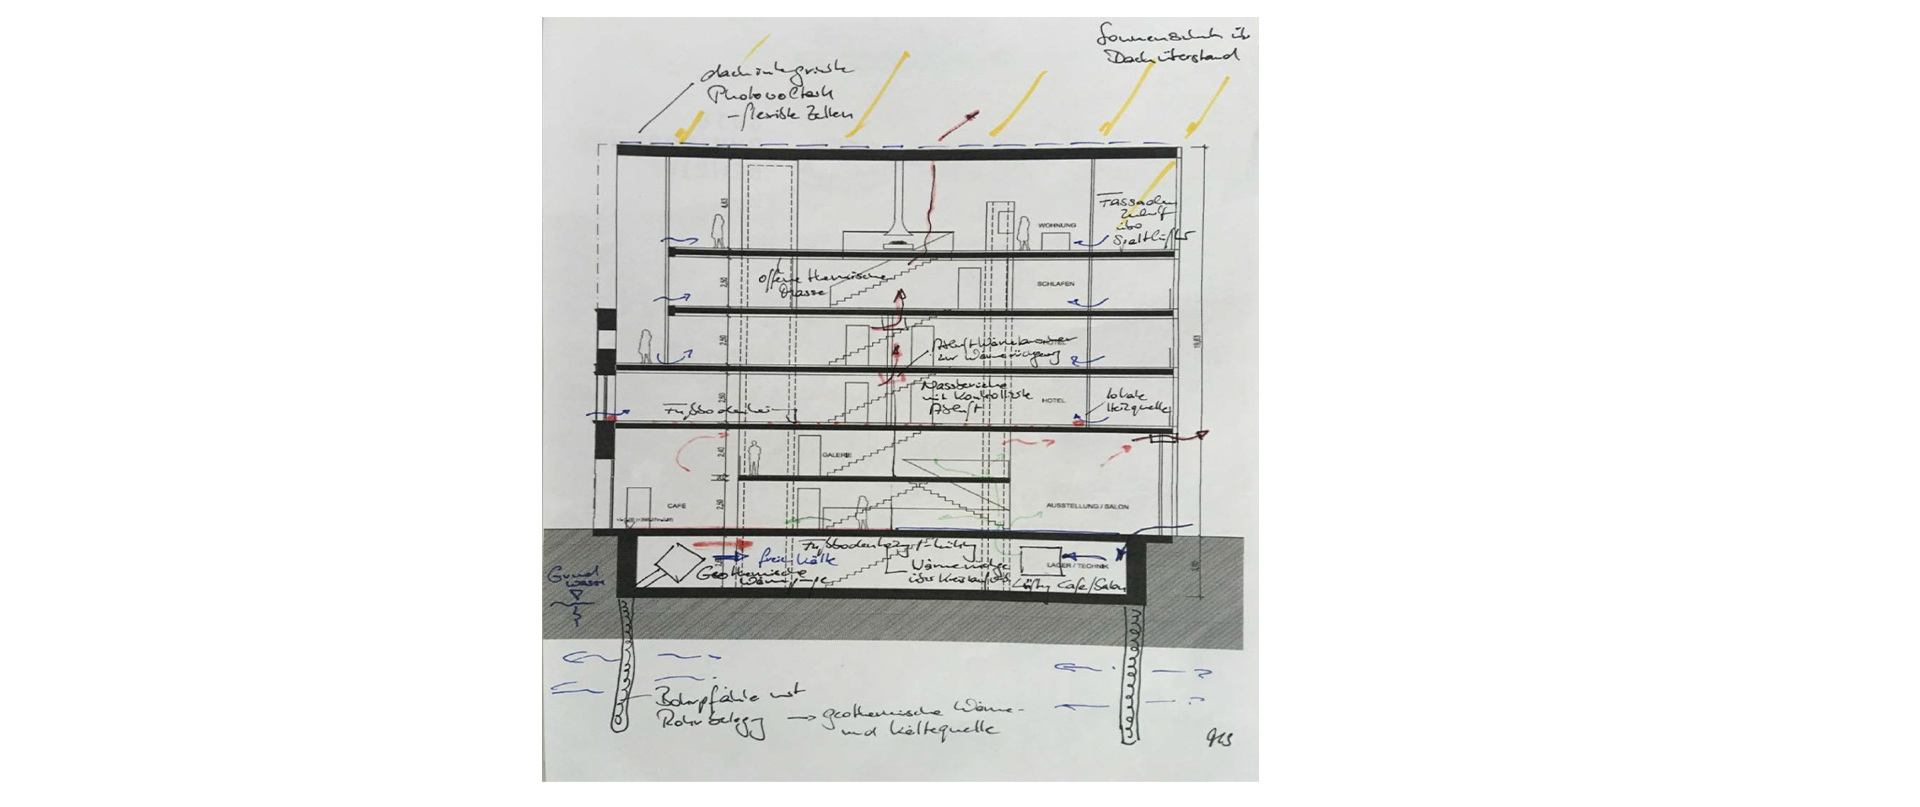 Sonnenschutz üb
Dachüberstand
dachintegrierte
Photovoltaik
- flexible Zellen
Fassaden
Zuluft
über
Spaltlüfter
WOHNUNG
4,83
offene thermische
Trasse
SCHLAFEN
2,50
Abluft Wärmetauscher
zur Wärmerückgewg
HOTEL
2,50
Nassbereiche
mit kontrollierte
Abluft
HOTEL
lokale
Heizquelle
2,50
Fußbodenhei
19,83
GALERIE
2,40
CAFÉ
AUSSTELLUNG / SALON
2,50
Fußbodenheizg/-kühlg
freie Kälte
Geothermische
Wärmepumpe
LAGER / TECHNIK
Lüftg Cafe/Salon
Grund
wasser
Bohrpfähle mit
Rohrbelegg → geothermische Wärme-
und Kältequelle